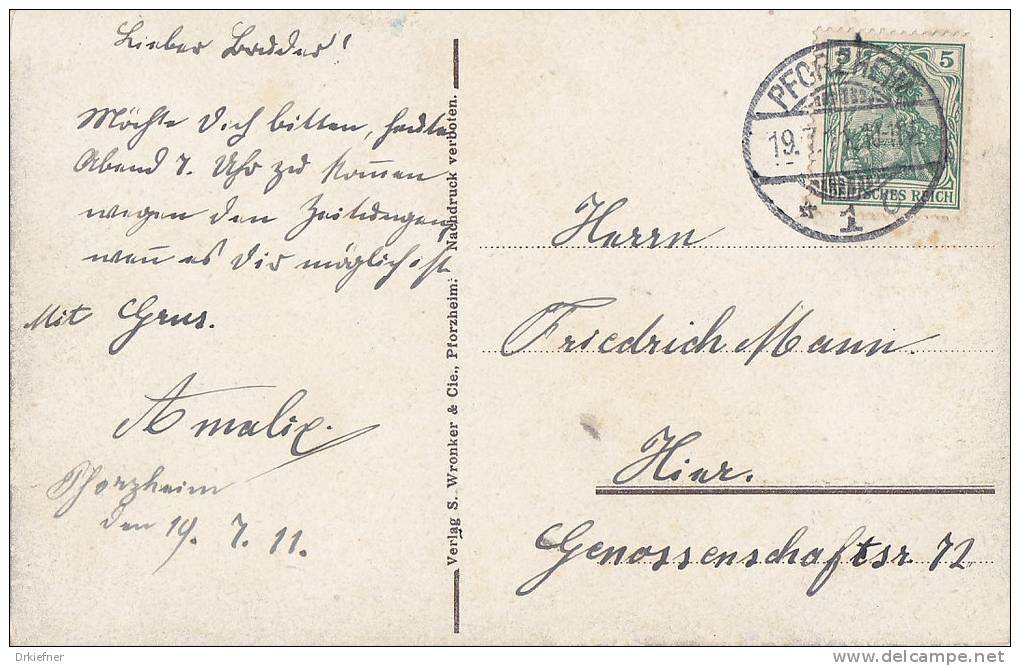 Lieber Bruder!
Möchte Dich bitten, heute
Abend 7. Uhr zu kommen
wegen den Zeitungen,
wenn es Dir möglich ist
Mit Grus.
Amalie.
Pforzheim
den 19. 7. 11.
Verlag S. Wronker & Cie., Pforzheim. Nachdruck verboten.
5
PFORZHEIM
19.7.
* 1
REICH
Herrn
Friedrich Mann.
Hier.
Genossenschaftsr. 72
Drkiefner
delcampe.net